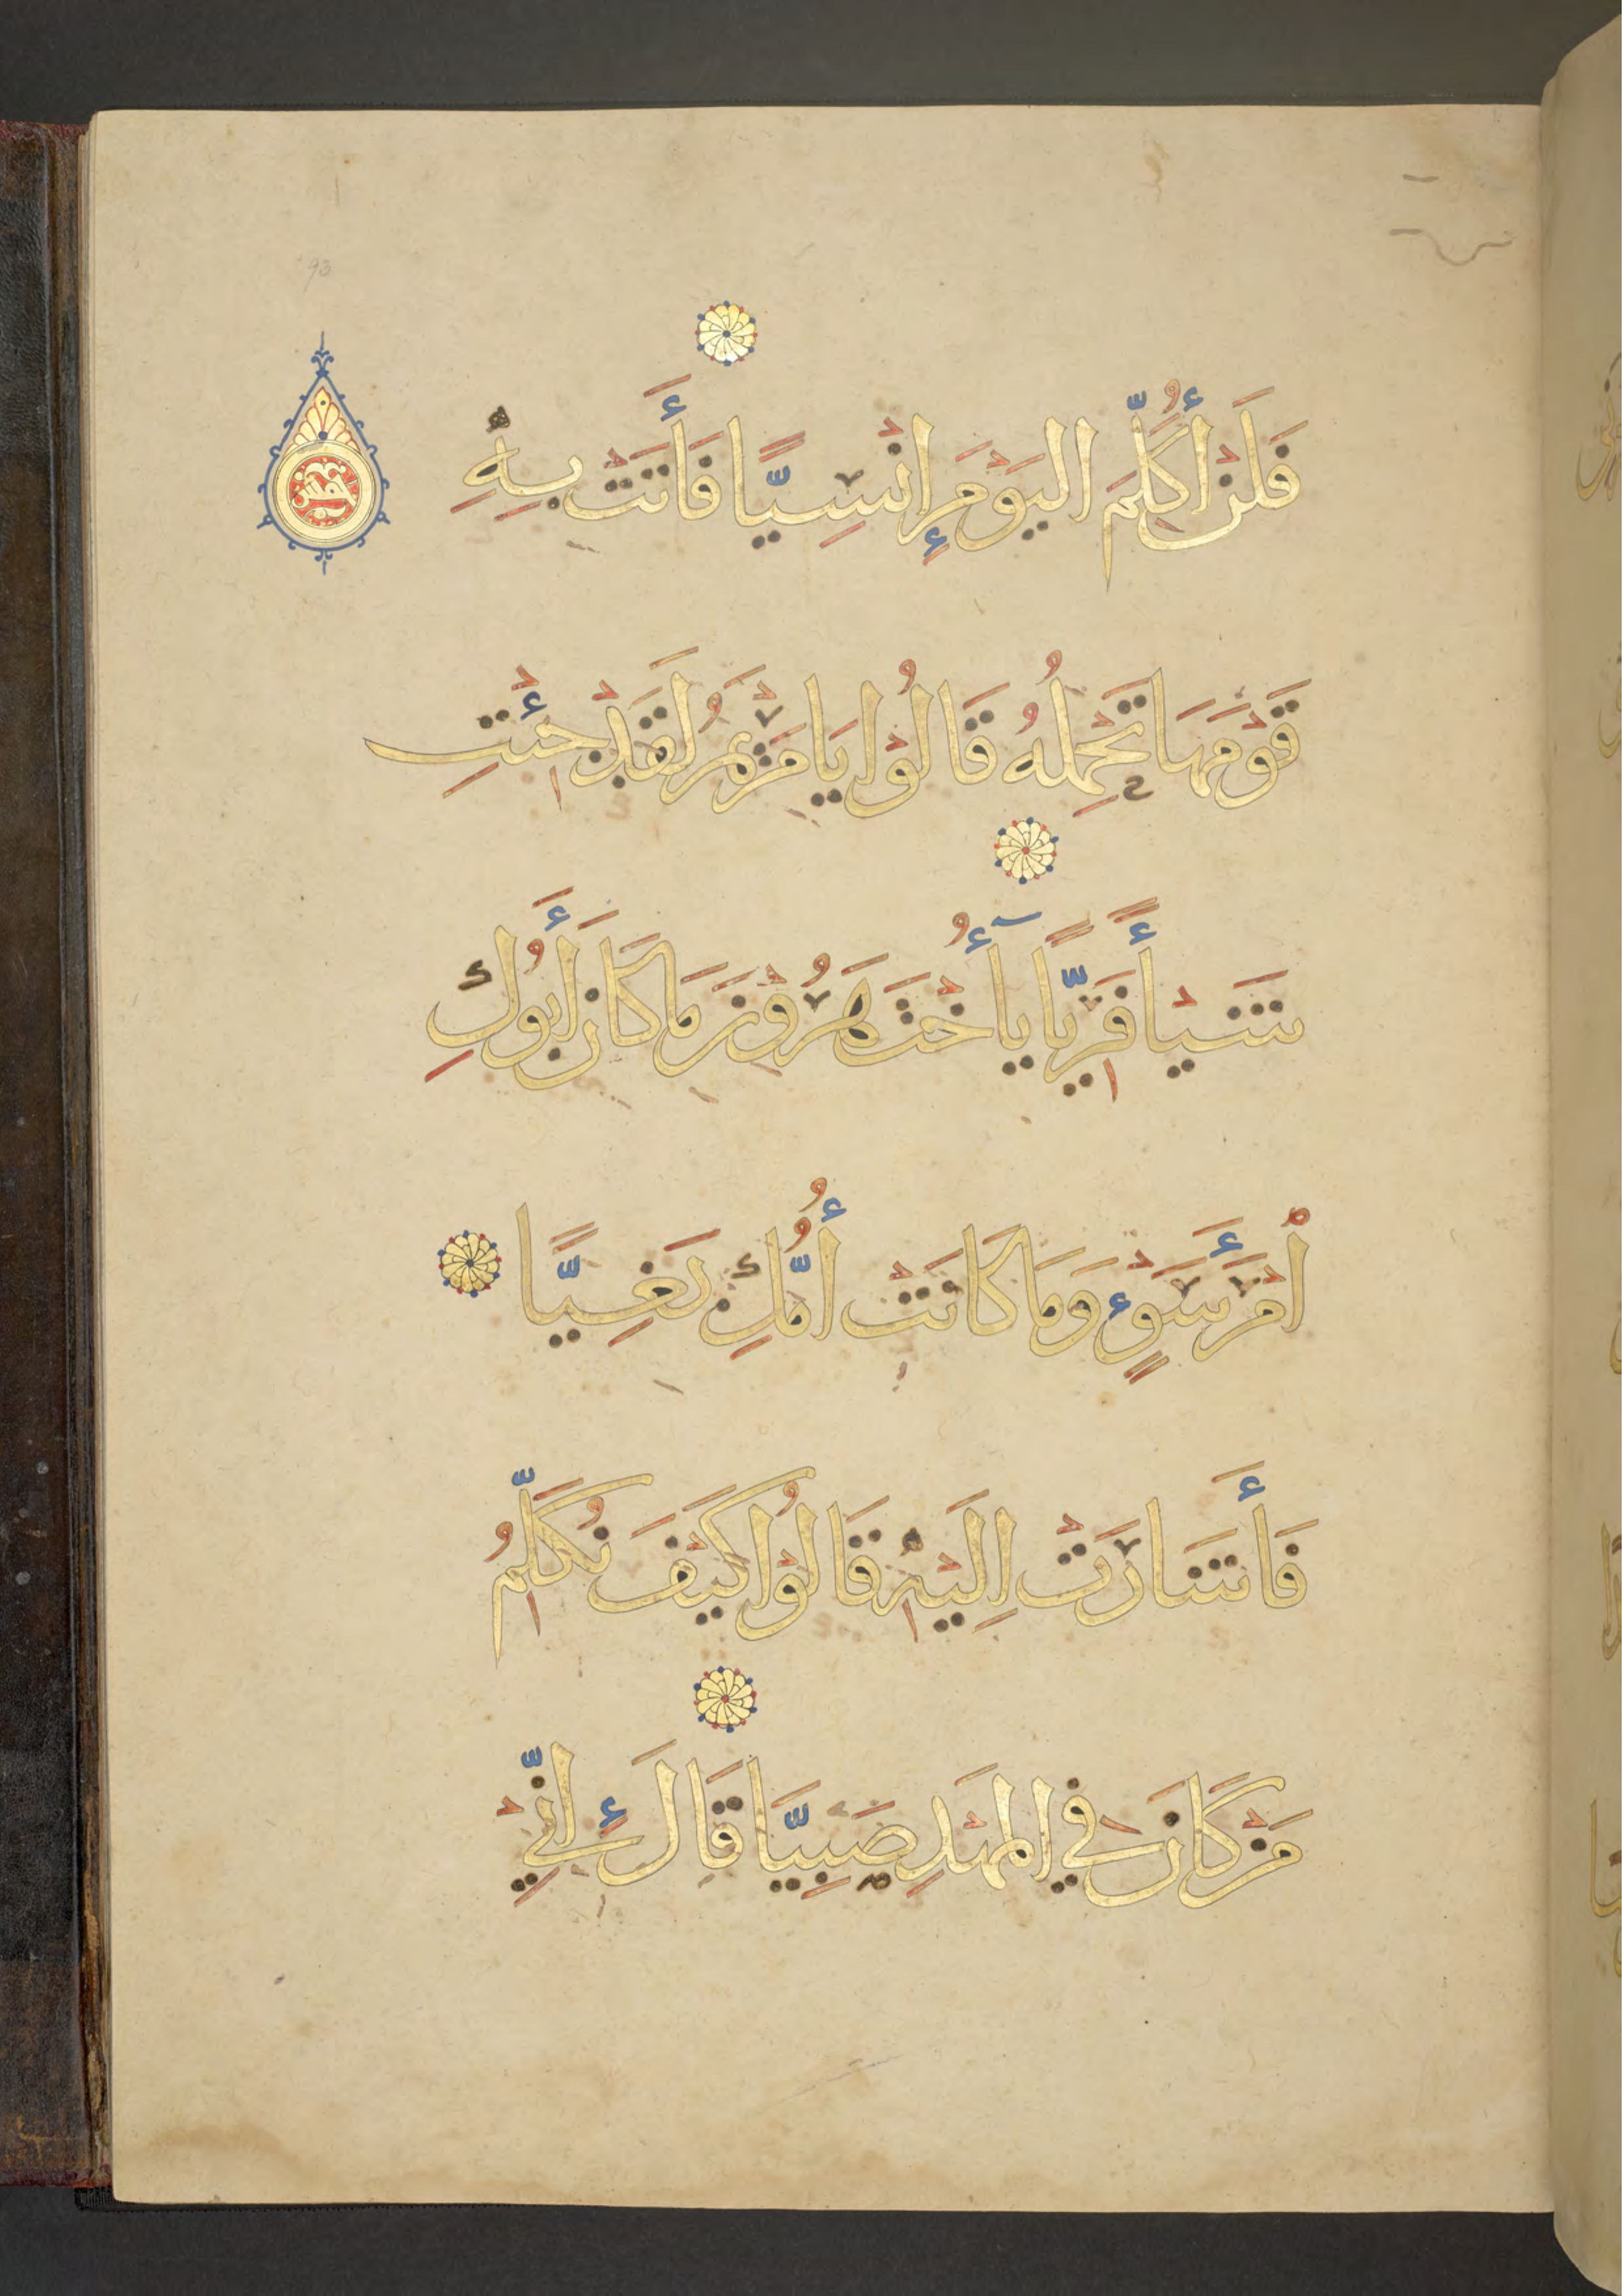 93
فَلَنْ أُكَلِّمَ الْيَوْمَ إِنْسِيًّا فَأَتَتْ بِهِ
خمس
قَوْمَهَا تَحْمِلُهُ قَالُوْا يَا مَرْيَمُ لَقَدْ جِئْتِ
شَيْأً فَرِيًّا يَآ أُخْتَ هَرُوْنَ مَا كَانَ أَبُوْكِ
اْمْرَأَ سَوْءٍ وَمَا كَانَتْ أُمُّكِ بَغِيًّا
فَأَشَارَتْ اِلَيْهِ قَالُوْا كَيْفَ نُكَلِّمُ
مَنْ كَانَ فِي الْمَهْدِ صَبِيًّا قَالَ إِنِّيْ